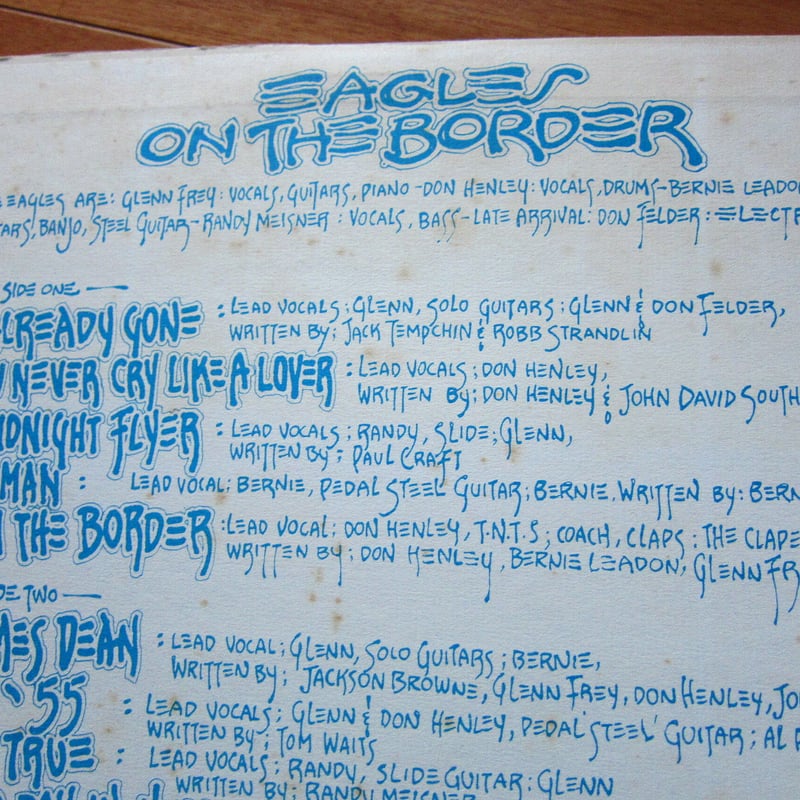 EAGLES
ON THE BORDER
EAGLES ARE: GLENN FREY: VOCALS, GUITARS, PIANO - DON HENLEY: VOCALS, DRUMS - BERNIE LEADO
TARS, BANJO, STEEL GUITAR - RANDY MEISNER : VOCALS, BASS - LATE ARRIVAL: DON FELDER: ELECTR
SIDE ONE —
LREADY GONE : LEAD VOCALS ; GLENN, SOLO GUITARS ; GLENN & DON FELDER,
WRITTEN BY ; JACK TEMPCHIN & ROBB STRANDLIN
NEVER CRY LIKE A LOVER : LEAD VOCALS ; DON HENLEY,
WRITTEN BY ; DON HENLEY & JOHN DAVID SOUTH
DNIGHT FLYER : LEAD VOCALS ; RANDY, SLIDE ; GLENN,
WRITTEN BY ; PAUL CRAFT
MAN : LEAD VOCAL ; BERNIE, PEDAL STEEL GUITAR ; BERNIE. WRITTEN BY : BERN
THE BORDER : LEAD VOCAL ; DON HENLEY, T.N.T.S ; COACH, CLAPS : THE CLAPE
WRITTEN BY ; DON HENLEY, BERNIE LEADON, GLENN FR
DE TWO —
MES DEAN : LEAD VOCAL ; GLENN, SOLO GUITARS ; BERNIE,
WRITTEN BY ; JACKSON BROWNE, GLENN FREY, DON HENLEY, JO
'55 : LEAD VOCALS ; GLENN & DON HENLEY, PEDAL STEEL GUITAR ; AL
WRITTEN BY ; TOM WAITS
TRUE : LEAD VOCALS ; RANDY, SLIDE GUITAR : GLENN
WRITTEN BY : RANDY MEISNER